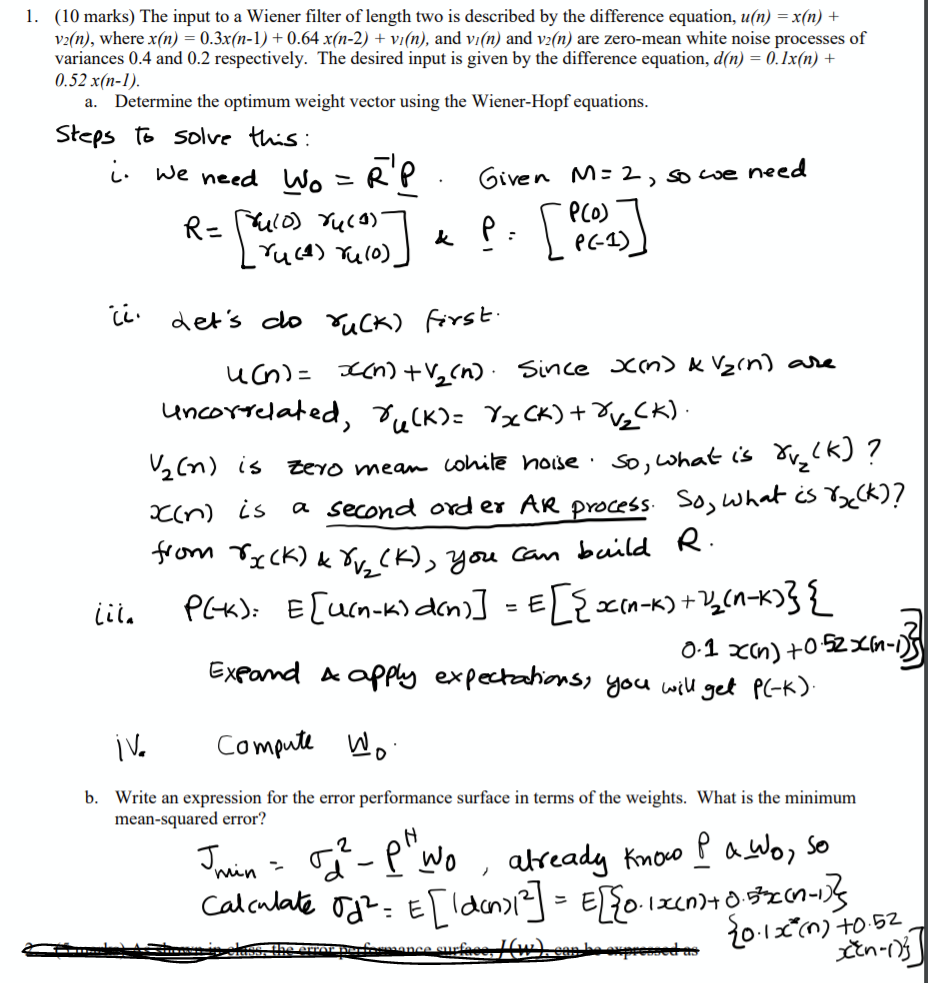 1. (10 marks) The input to a Wiener filter of length two is described by the difference equation, u(n) = x(n) +
v₂(n), where x(n) = 0.3x(n-1) + 0.64 x(n-2) + v₁(n), and v₁(n) and v₂(n) are zero-mean white noise processes of
variances 0.4 and 0.2 respectively. The desired input is given by the difference equation, d(n) = 0.1x(n) +
0.52 x(n-1).
a. Determine the optimum weight vector using the Wiener-Hopf equations.
Steps to solve this:
i. We need W₀ = R⁻¹P. Given M=2, so we need
R = [ru(0) ru(1) ru(1) ru(0)] & P = [P(0) P(-1)]
ii. Let's do ru(k) first.
u(n) = x(n) + V₂(n). Since x(n) & V₂(n) are
uncorrelated, ru(k) = rx(k) + rv₂(k).
V₂(n) is zero mean white noise. So, what is rv₂(k)?
x(n) is a second order AR process. So, what is rx(k)?
from rx(k) & rv₂(k), you can build R.
iii. P(-k): E[u(n-k)d(n)] = E[{x(n-k) + V₂(n-k)}{
0.1 x(n) + 0.52 x(n-1)}]
Expand & apply expectations, you will get P(-k).
iv. Compute W₀.
b. Write an expression for the error performance surface in terms of the weights. What is the minimum
mean-squared error?
Jmin = σd² - Pᴴ W₀, already know P & W₀, so
Calculate σd² = E[|d(n)|²] = E[{0.1x(n) + 0.52x(n-1)}
{0.1x*(n) + 0.52
x*(n-1)}]
class, the error performance surface, J(w), can be expressed as